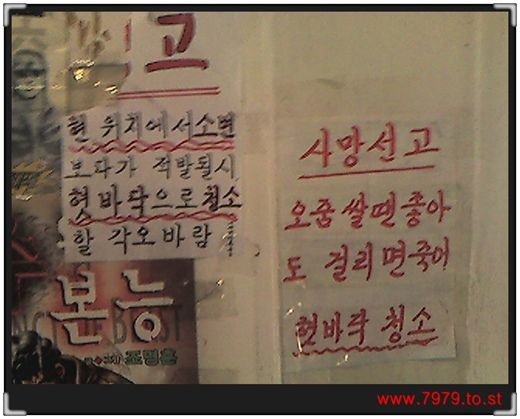 경고
현 위치에서소변
보다가 적발될시
혓바닥으로청소
할 각오 바람
본능
조명훈
사망선고
오줌쌀땐좋아
도 걸리면죽어
혓바닥 청소
www.7979.to.st